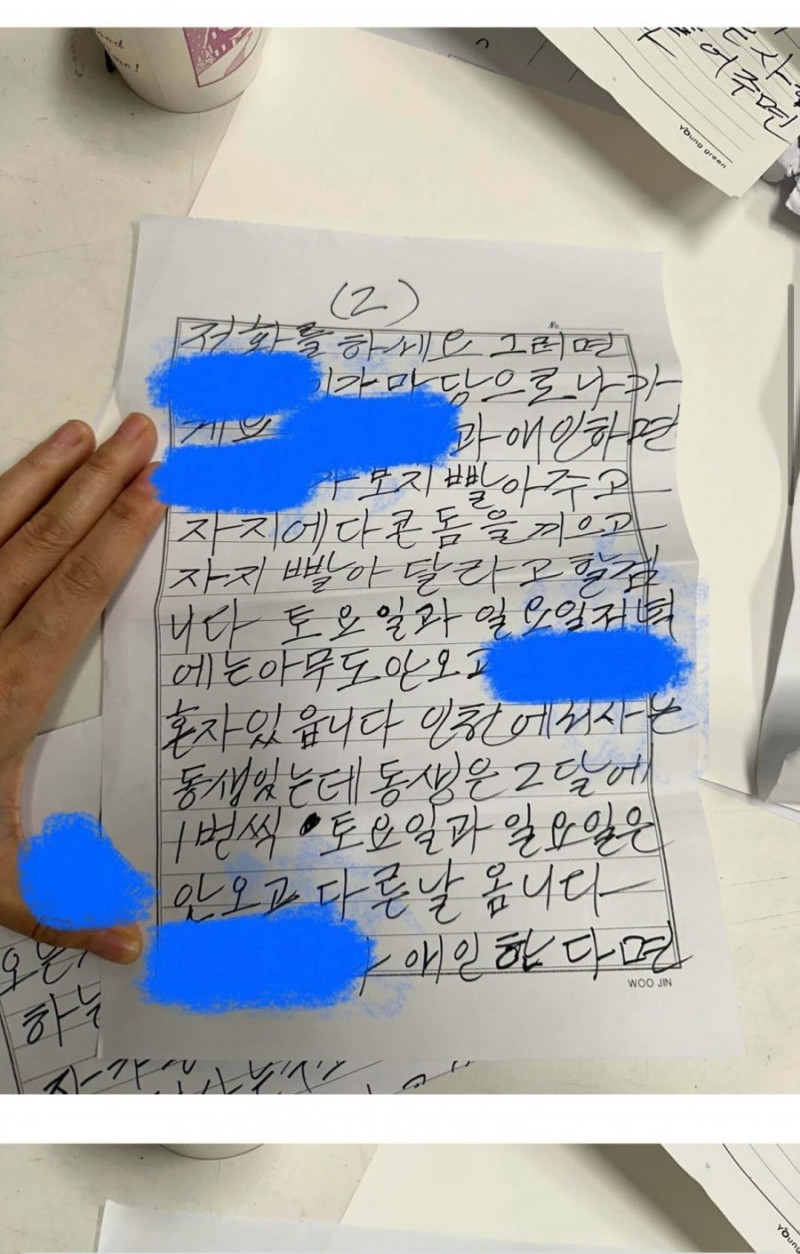 어주면
Young green
(2)
전화를하세요 그러면
이가마당으로나가
게요 과애인하면
가 보지빨아주고
자지에다콘돔을끼으고
자지 빨아 달라고할검
니다 토요일과 일요일저녁
에는아무도안오고
혼자있읍니다 인천에서사는
동생있는데 동생은 2달에
1번씩 토요일과 일요일은
안오고 다른날 옵니다
애인한다면
WOO JIN
하는